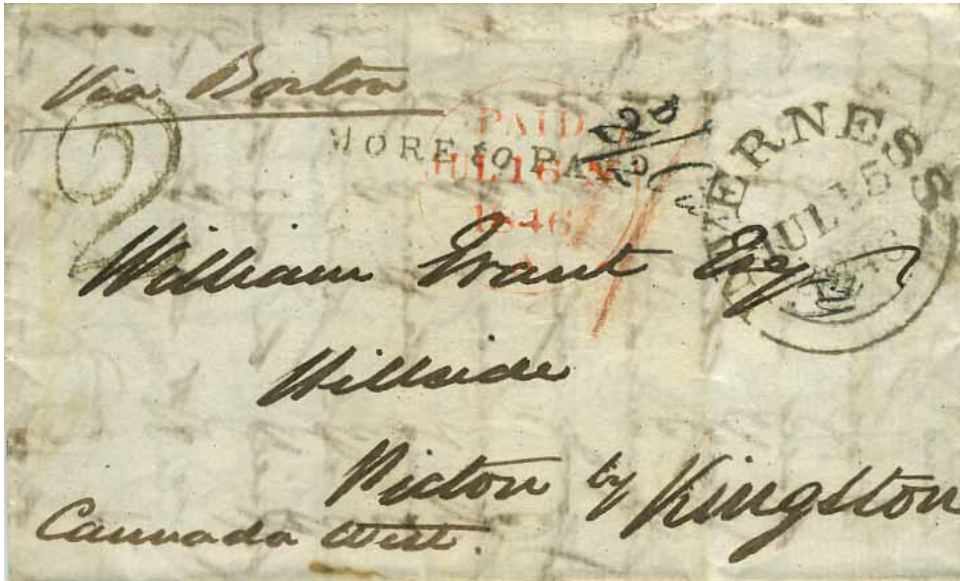 Via Boston
2
MORE to PAY
PAID
JUL 16
1846
VERNESS
JUL 15
William Grant Esq
Hillside
Picton by Kingston
Cannada West.